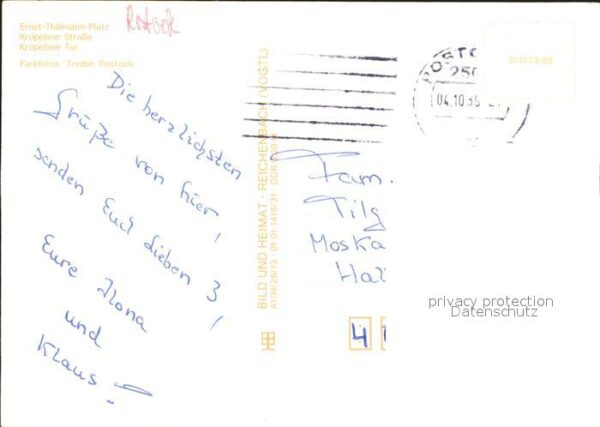 Ernst-Thälmann-Platz
Kröpeliner Straße
Kröpeliner Tor
Farbfotos: Treder, Rostock
Rostock
Die herzlichsten
Grüße von hier,
senden Euch lieben 3
Eure Ilona
und
Klaus
BILD UND HEIMAT · REICHENBACH (VOGTL)
04.10.
Fam.
Tilg
Moska
Hal
4
privacy protection
Datenschutz